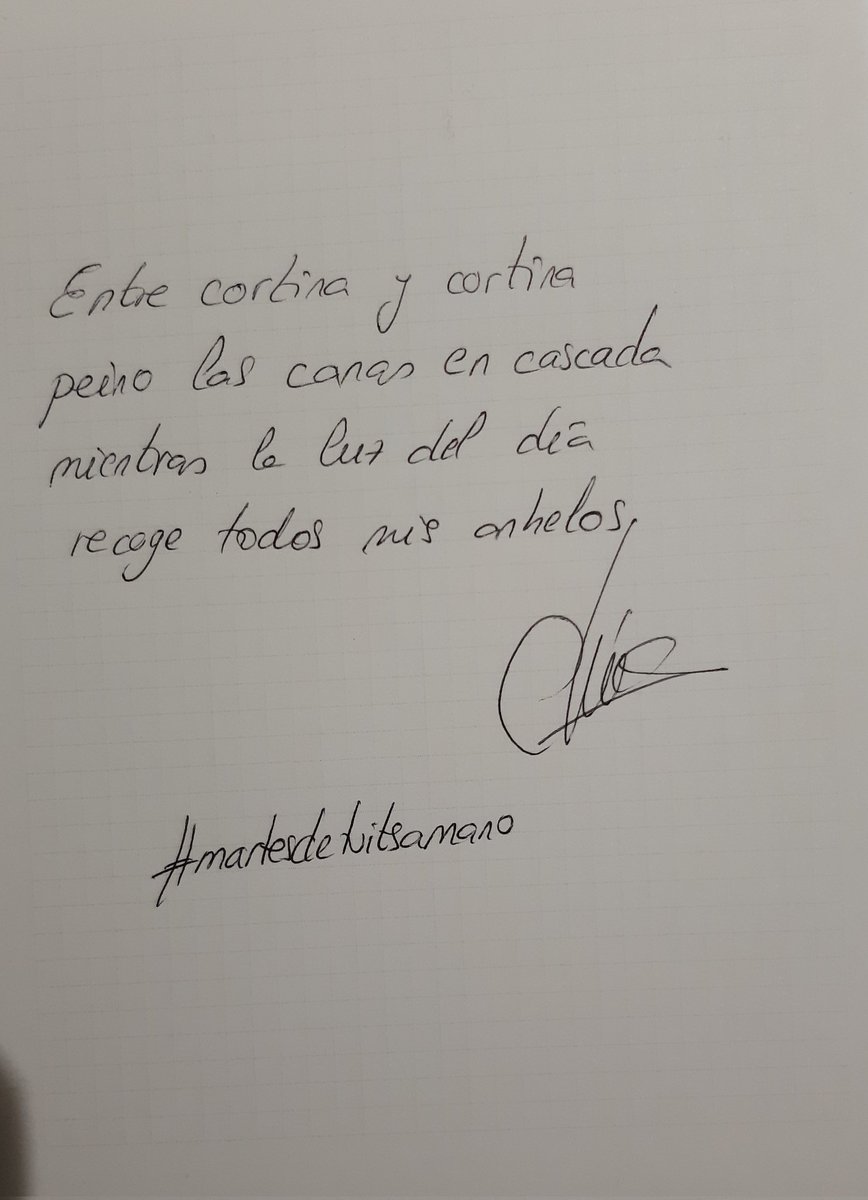 Entre cortina y cortina
peino las canas en cascada
mientras la luz del día
recoge todos mis anhelos,
#martesdetuitsamano